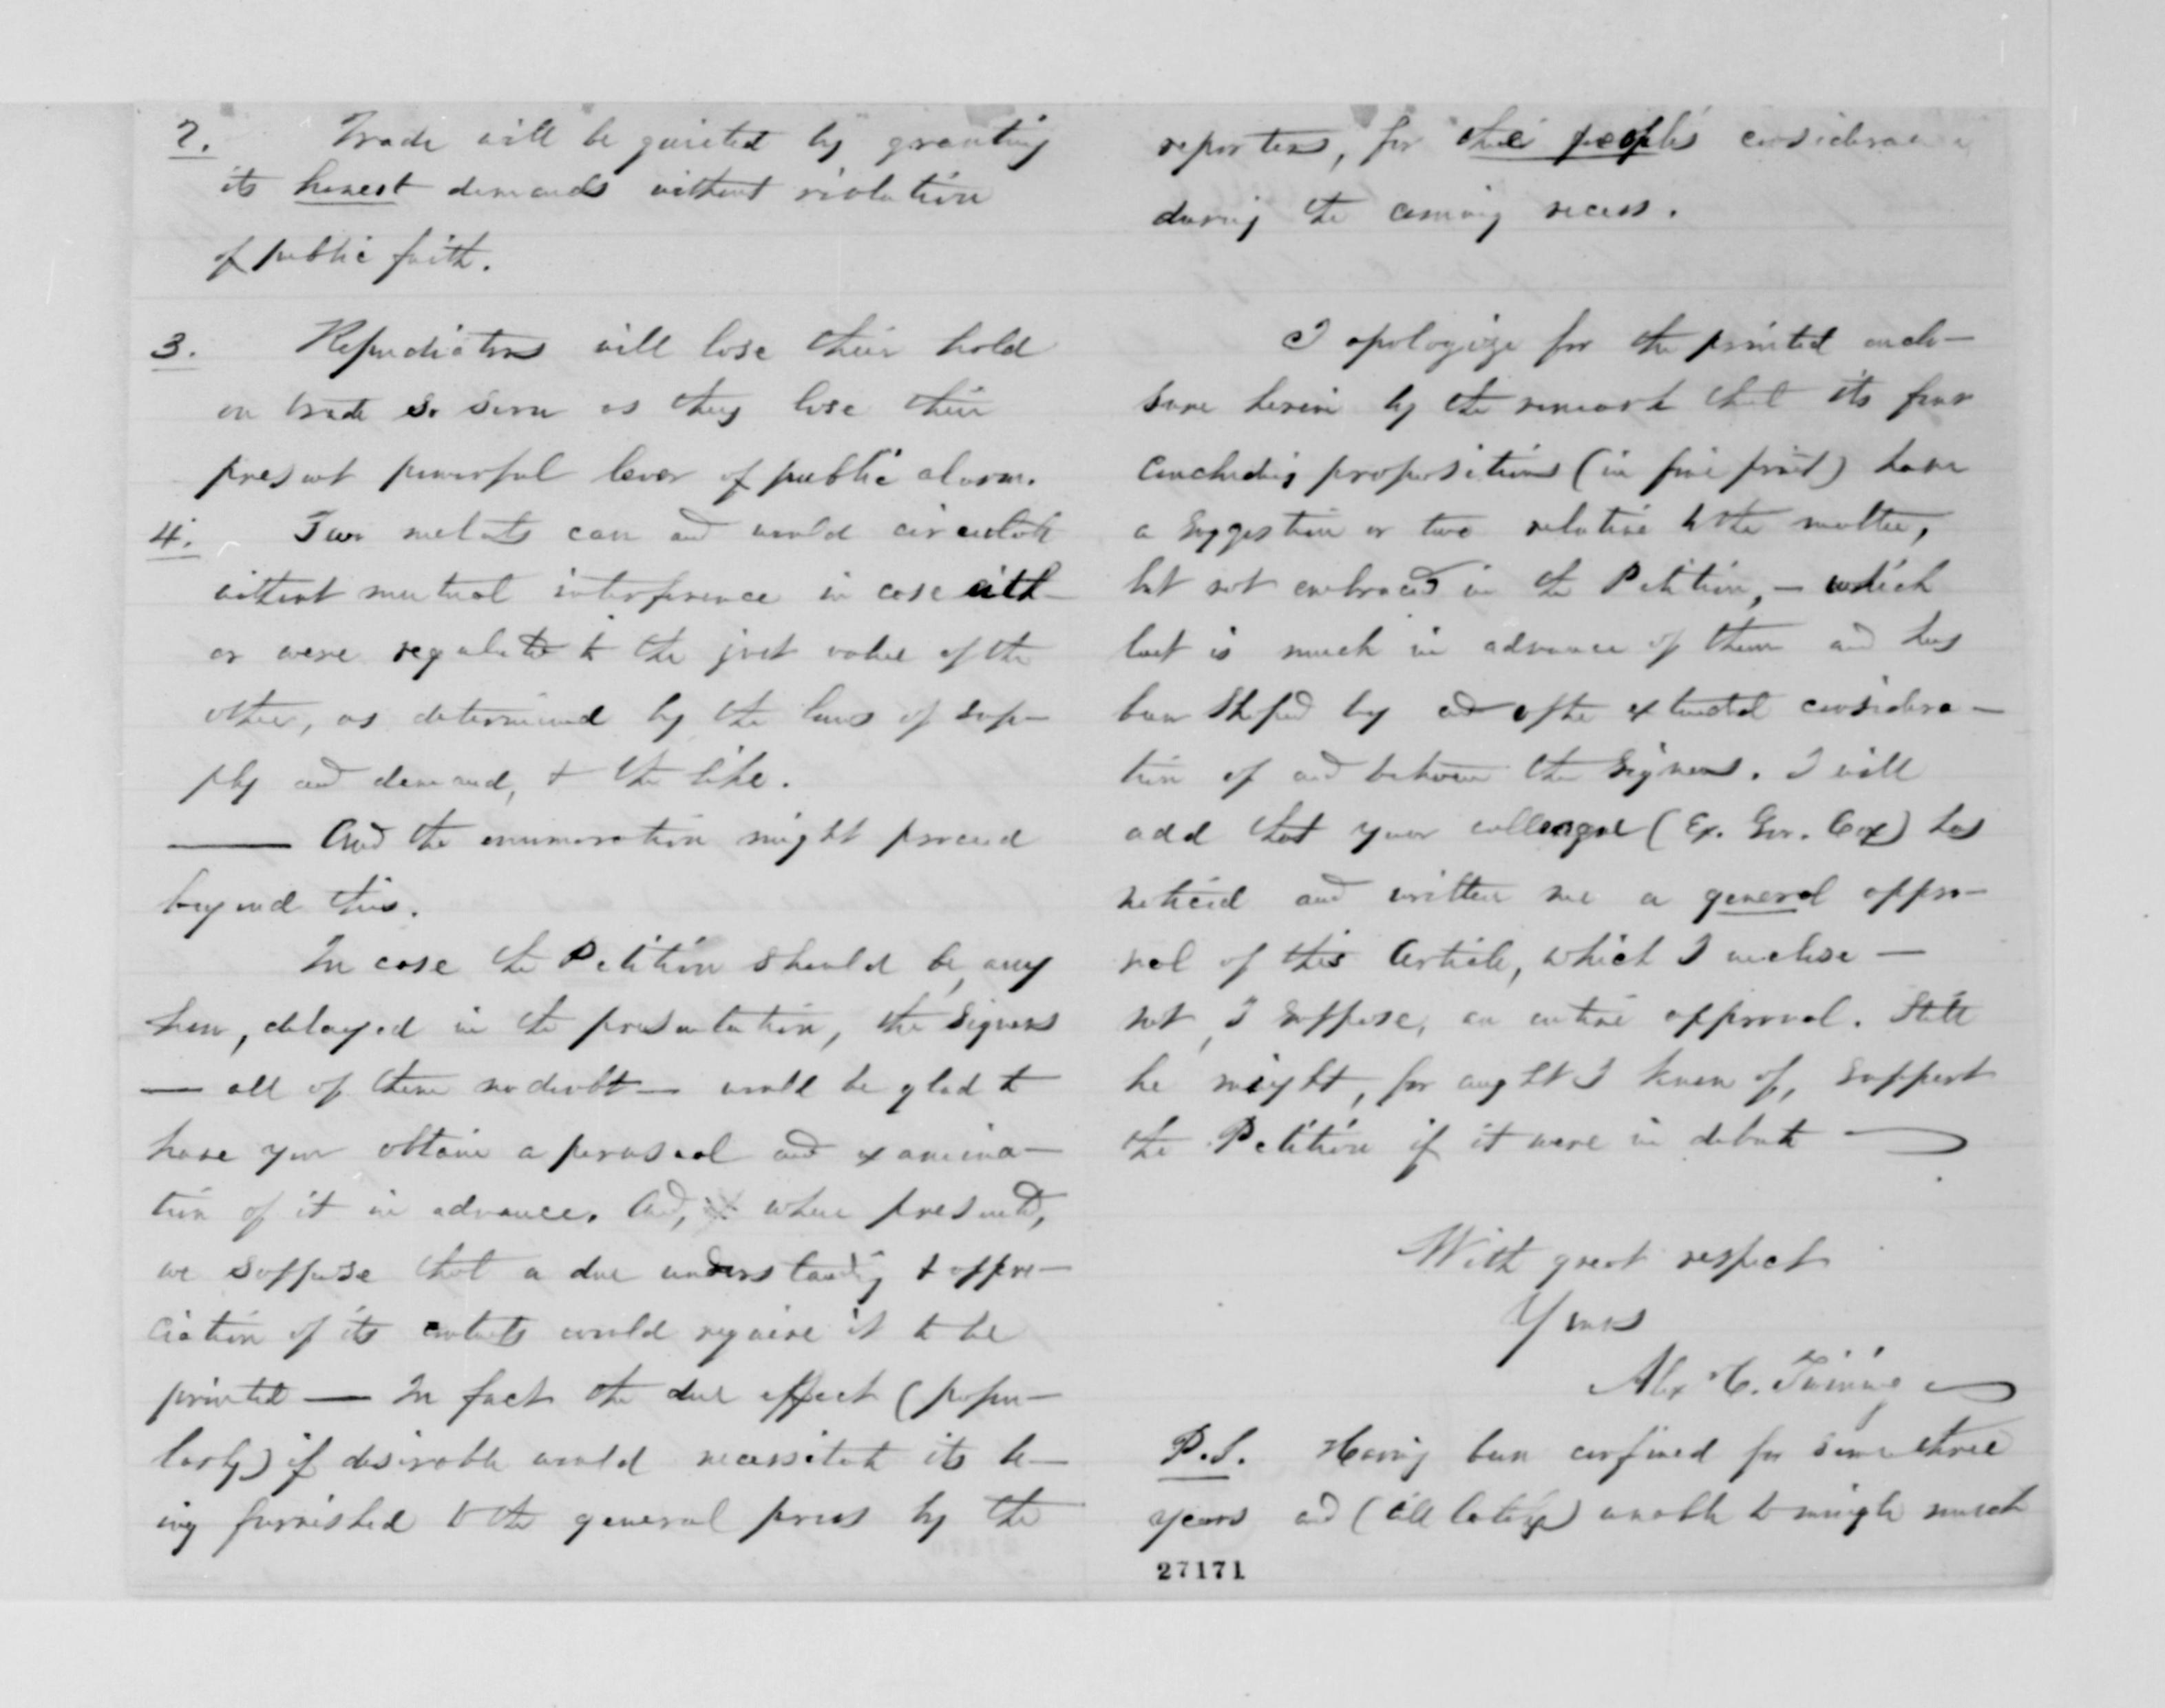 2. Trade will be quieted by granting
its honest demands without violation
of public faith.
3. Repudiators will lose their hold
on trade so soon as they lose their
present powerful lever of public alarm.
4. Two metals can and would circulate
without mutual interference in case eith-
er were regulated to the just value of the
other, as determined by the laws of sup-
ply and demand, & the like.
— And the enumeration might proceed
beyond this.
In case the Petition should be, any
how, delayed in the presentation, the signers
— all of them no doubt — would be glad to
have you obtain a perusal and examina-
tion of it in advance. And, when presented,
we suppose that a due understanding & appre-
ciation of its contents would require it to be
printed — In fact the due effect (popu-
larly) if desirable would necessitate its be-
ing furnished to the general press by the
reporters, for the people's consideration
during the coming recess.
I apologize for the printed enclo-
sure herein by the remark that its four
concluding propositions (in fine print) have
a suggestion or two relative to the matter,
but not embraced in the Petition, — which
last is much in advance of them and has
been shaped by and after extended considera-
tion of and between the signers. I will
add that your colleague (Ex. Gov. Cox) has
noticed and written me a general appro-
val of this Article, which I inclose —
not, I suppose, an entire approval. Still
he might, for aught I know of, support
the Petition if it were in debate —
With great respect
Yours
Alex C. Twining
P.S. Having been confined for some three
years and (till lately) unable to mingle much
27171